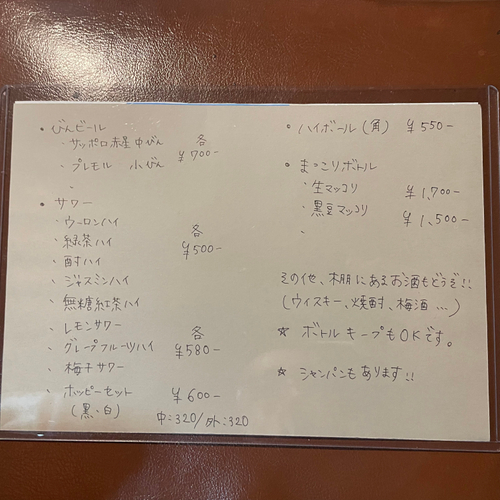 • びんビール
・サッポロ赤星 中びん 各
・プレモル 小びん ¥700-
・
• サワー
・ウーロンハイ 各
・緑茶ハイ ¥500-
・酎ハイ
・ジャスミンハイ
・無糖紅茶ハイ
・レモンサワー 各
・グレープフルーツハイ ¥580-
・梅干サワー
・ホッピーセット ¥600-
(黒・白) 中:320/外:320
• ハイボール (角) ¥550-
• まっこりボトル
・生マッコリ ¥1,700-
・黒豆マッコリ ¥1,500-
・
その他、棚にあるお酒もどうぞ!!
(ウィスキー、焼酎、梅酒...)
☆ ボトルキープもOKです。
☆ シャンパンもあります!!